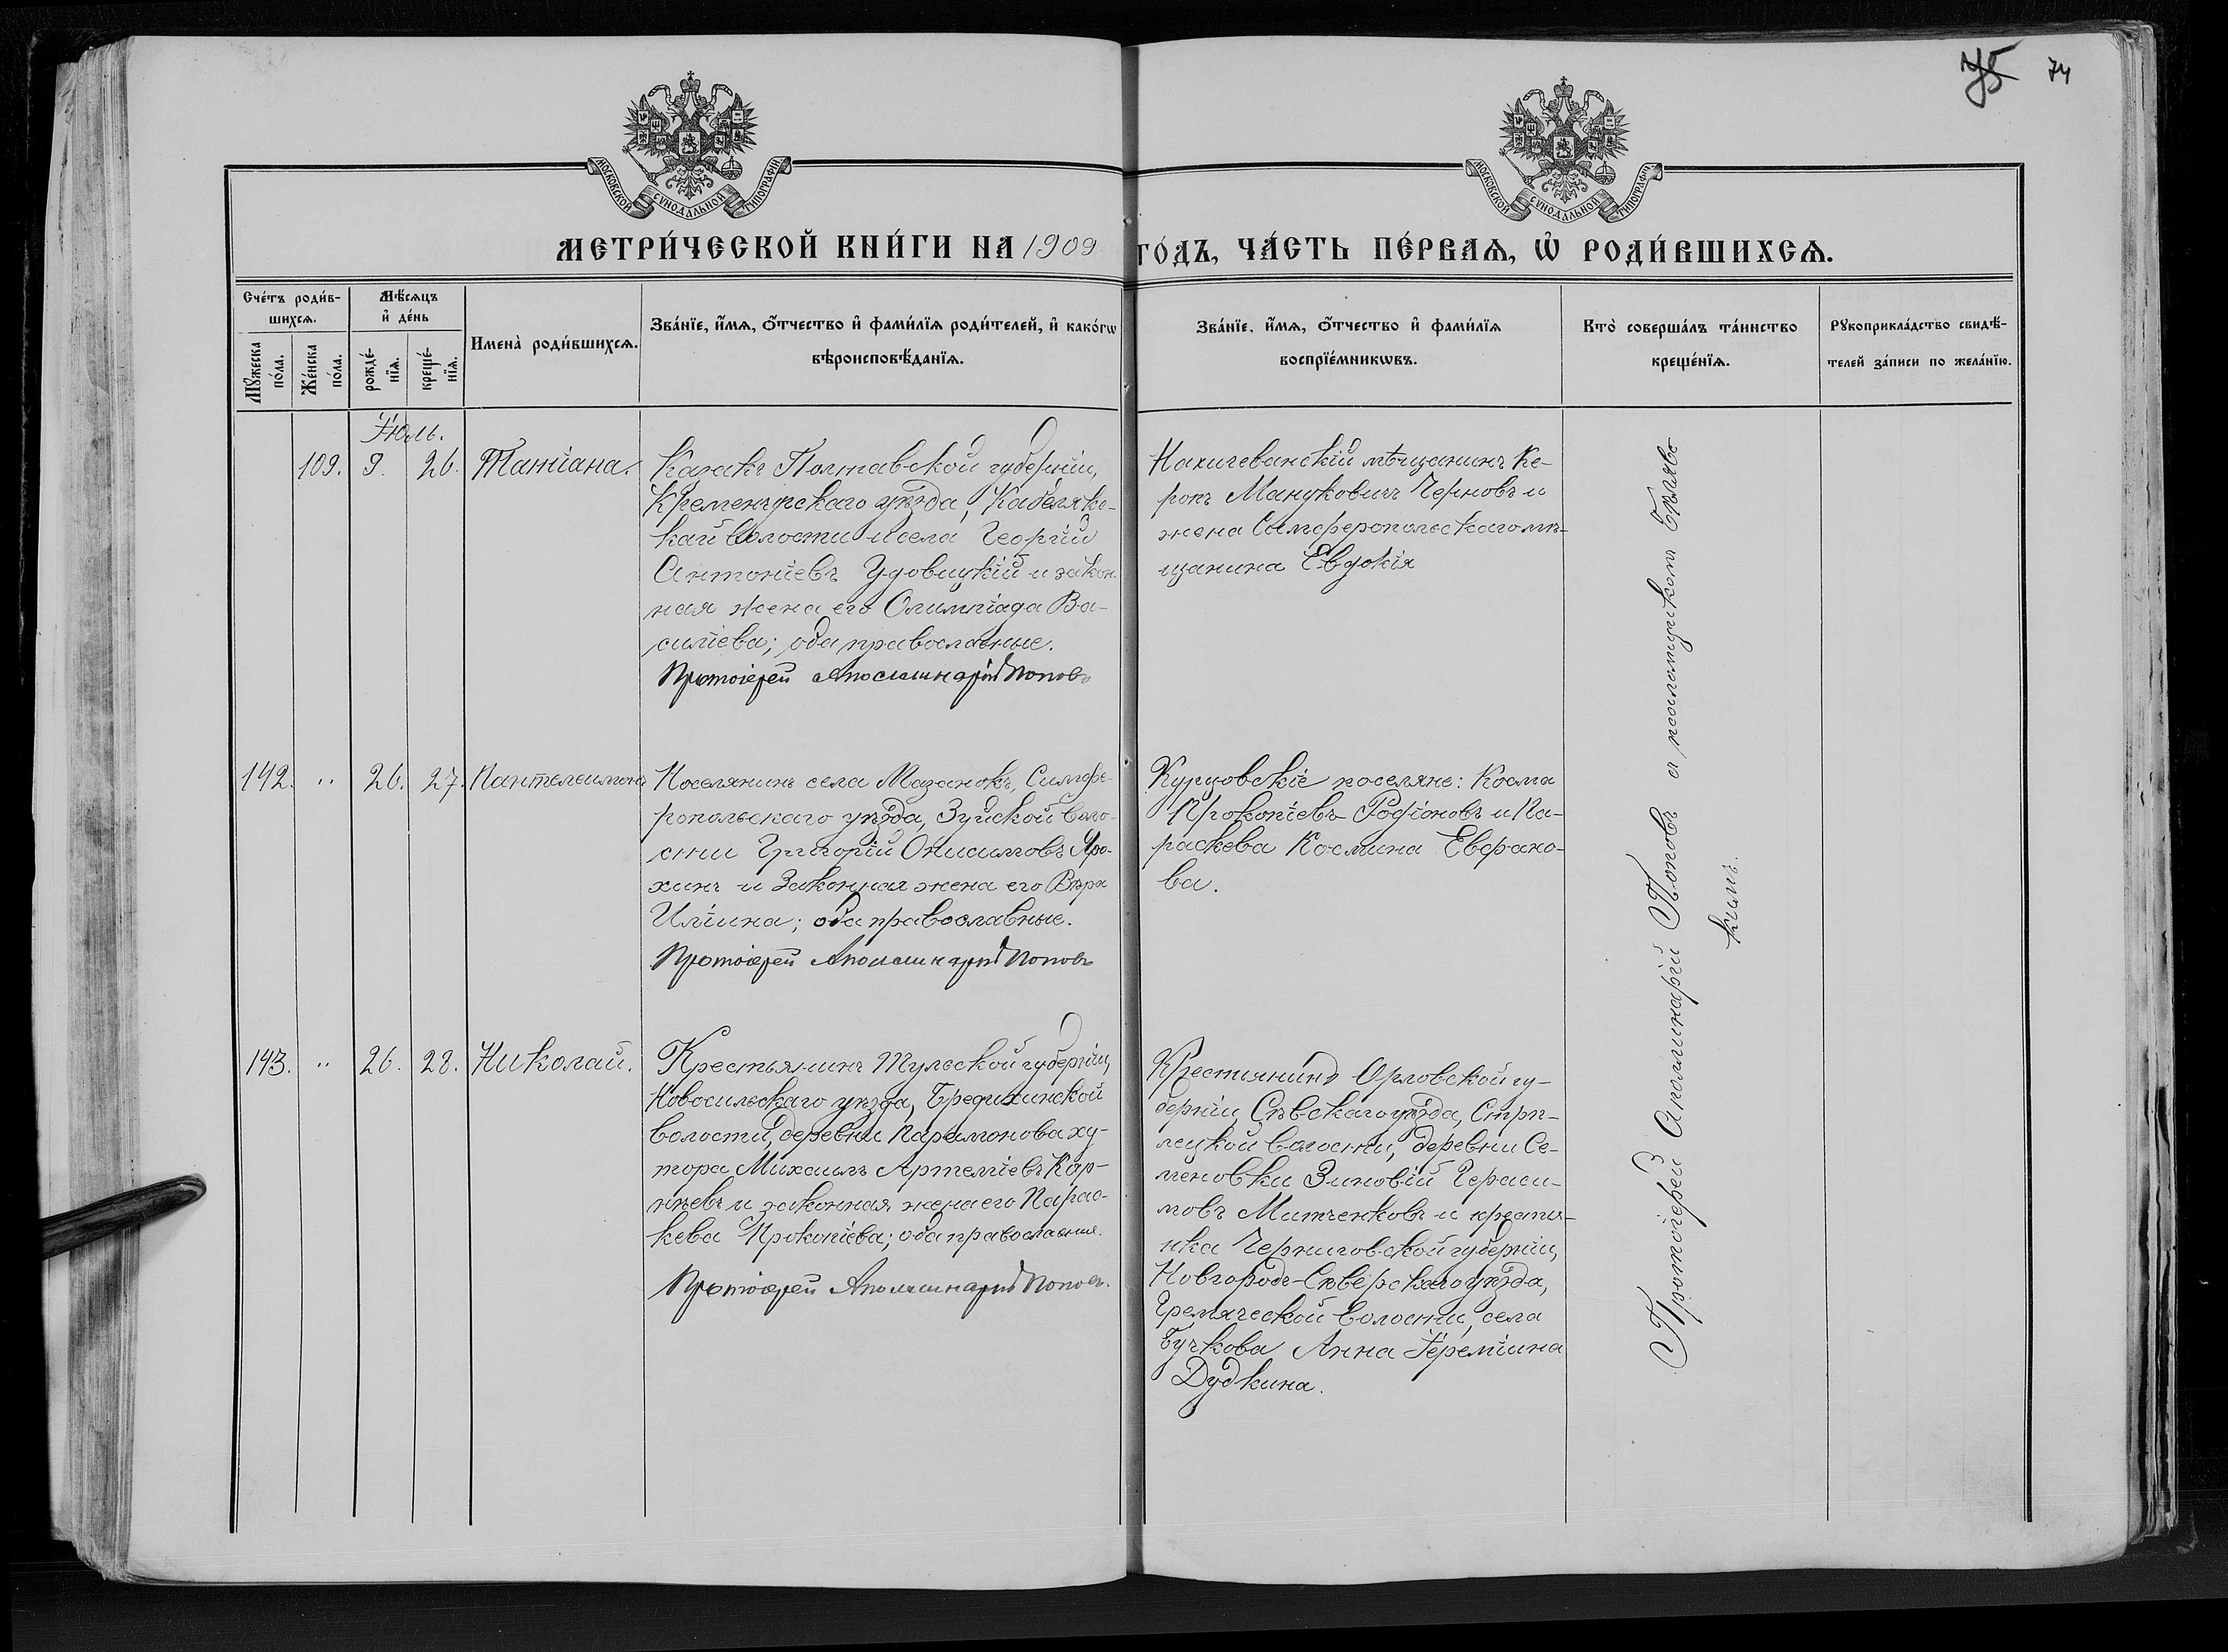 75 74
МОСКОВСКОЙ СѴНОДАЛЬНОЙ ТИПОГРАФІИ
МОСКОВСКОЙ СѴНОДАЛЬНОЙ ТИПОГРАФІИ
МЕТРИ́ЧЕСКОЙ КНИ́ГИ НА 1909 ГО́ДЪ, ЧА́СТЬ ПЕ́РВАѦ, Ѡ҆ РОДИ́ВШИХСѦ.
Сче́тъ роди́в-
шихсѧ.
Мꙋ́жеска по́ла.
Же́нска по́ла.
Мѣ́сѧцъ
и҆ де́нь
рожде́-
нїѧ.
креще́-
нїѧ.
Имена̀ роди́вшихсѧ.
Зва́нїе, и҆́мѧ, ѻ҆́тчество и҆ фами́лїѧ роди́телей, и҆ како́гѡ
вѣроисповѣ́данїѧ.
Зва́нїе, и҆́мѧ, ѻ҆́тчество и҆ фами́лїѧ
воспрїе́мникѡвъ.
Кто̀ соверша́лъ та́инство
креще́нїѧ.
Рꙋкоприкла́дство свидѣ́-
телей за́писи по жела́нїю.
Іюль.
109. 9. 26. Татіана.
Казакъ Полтавской губерніи,
Кременчугскаго уѣзда, Кабеляк-
кай волости и села Георгій
Антоніевъ Удовицкій и закон-
ная жена его Олимпіада Ва-
силіева; оба православные.
Протоіерей Аполлинарій Поповъ
Нахичеванскій мѣщанинъ Ке-
ропъ Мануковичъ Черновъ и
жена Симферопольскаго мѣ-
щанина Евдокія
142. " 26. 27. Пантелеимонъ
Поселянинъ села Мазанокъ, Симфе-
ропольскаго уѣзда, Зуйской воло-
сти Григорій Онисимовъ Яро-
хинъ и законная жена его Вѣра
Иліина; оба православные.
Протоіерей Аполлинарій Поповъ
Курцовскіе поселяне: Косма
Прокопіевъ Родіоновъ и Па-
раскева Космина Евграфо-
ва.
143. " 26. 28. Николай.
Крестьянинъ Тульской губерніи,
Новосильскаго уѣзда, Бредихинской
волости, деревни Парамонова ху-
тора Михаилъ Артеміевъ Кар-
пѣевъ и законная жена его Парас-
кева Прокопіева; оба православные.
Протоіерей Аполлинарій Поповъ.
Крестіянинъ Орловской гу-
берніи, Сѣвскаго уѣзда, Стрѣ-
лецкой волости, деревни Се-
меновки Зиновій Гераси-
мовъ Митченковъ и крестія-
нка Черниговской губерніи,
Новгородъ-Сѣверскаго уѣзда,
Гремяческой волости, села
Бучкова Анна Іереміина
Дудкина.
Протоіерей Аполлинарій Поповъ съ псаломщикомъ Бѣляв-
кимъ.